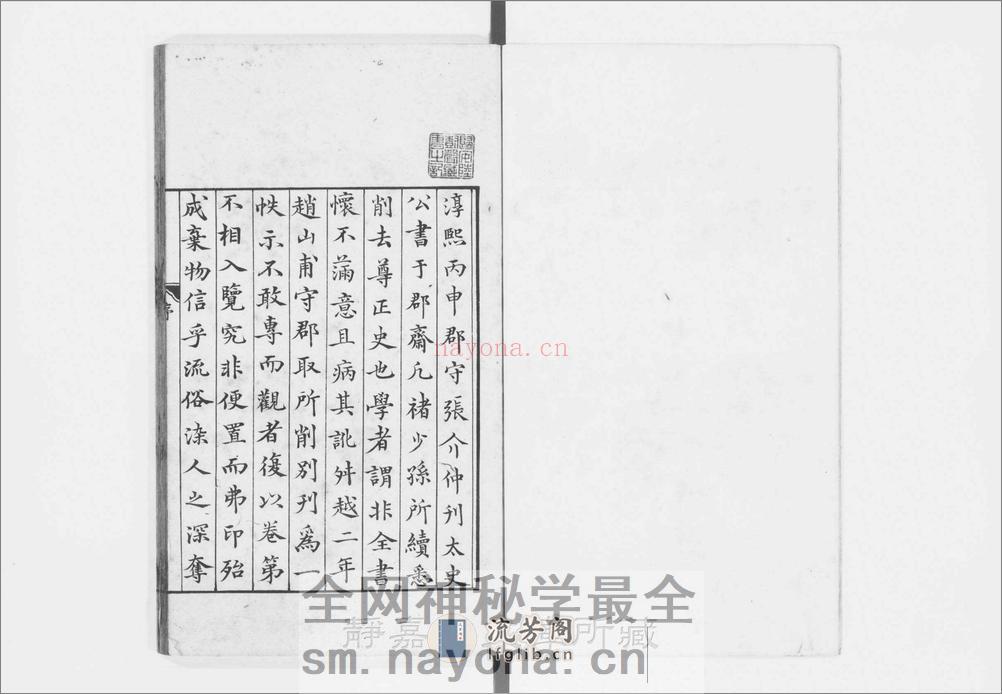 淳熙丙申郡守張介仲刊太史
公書于郡齋凡褚少孫所續悉
削去尊正史也學者謂非全書
懷不滿意且病其訛舛越二年
趙山甫守郡取所削別刊爲一
帙示不敢專而觀者復以卷第
不相入覽究非便置而弗印殆
成棄物信乎流俗染人之深奪
序
nayona.cn
全网神秘学最全
靜嘉
所藏
流芳阁
lfglib.cn
sm.nayona.cn